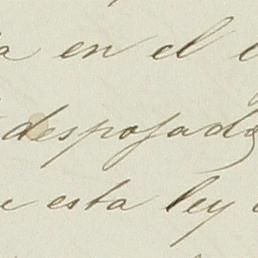 en el
despojado
esta ley